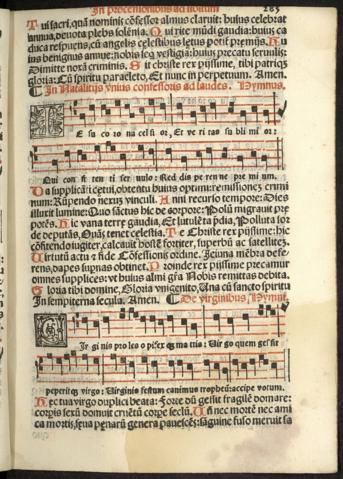 In processionibus ad libitum 285
Tui sacri, quā nominis cōfessor almus claruit: huius celebrat
annua, deuota plebs solēnia. Qui rite mūdi gaudia: huius ca
duca respuens, cū angelis celestibus letus potit premijs. Hu
ius benignus annue: nobis seq vestigia: huius precatu seruulis:
Dimitte noxā criminis. Sit christe rex pijssime, tibi patriq;
gloria: Cū spiritu paracleto, Et nunc in perpetuum. Amen.
In Natalitijs vnius confessoris ad laudes. Hymnus.
E su co ro na cel si or: Et ve ri tas su bli mi or:
Qui con fi ten ti ser uulo: Red dis pe renne pre mi um.
Da supplicāti cetui, obtentu huius optimi: remissionez crimi
num: Rūpendo nexuz vinculi. Anni recurso tempore: Dies
illuxit lumine: Quo sāctus hic de corpore: Polū migrauit pre
potēs. Hic vana terre gaudia, Et luculēta pdia, Polluta sor
de deputās, Ouās tenet celestia. Te Christe rex pijssime: hic
cōfitendo iugiter, calcauit hostē fortiter, superbū ac satellitez.
Uirtutū actu & fide Cōfessionis ordine. Ieiuna mēbra defe-
rens, dapes supnas obtinet. Proinde rex pijssime precamur
omnes supplices: vt huius almi grā Nobis remittas debita.
Gloria tibi domine, Gloria vnigenito, Una cū sancto spiritu
In sempiterna secula. Amen. De virginibus, Hymn9.
Ir gi nis pro les o pifex q; ma tris: Uir go quem ges sit
peperitq; virgo: Uirginis festum canimus tropheū: accipe votum.
Hec tua virgo duplici beata: Forte dū gessit fragilē domare:
corpis sexū domuit cruētū corpe seclū. Uñ nec mortē nec ami
ca mortis, seua penarū genera pauescēs: sāguine fuso meruit sa